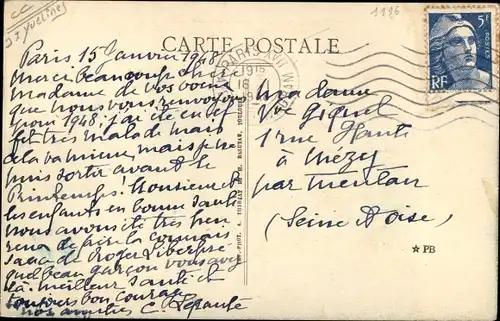 CC
yvelines
1196
CARTE POSTALE
5F
POSTES
RF
PARIS XVII
16
1948
Paris 15 Janvier 1948
Merci beaucoup chère
Madame de vos voeux
que nous vous renvoyons
pour 1948. j'ai été en ef
fet très malade mais
de la mais je ne
puis sortir avant le
Printemps. Monsieur et
les enfants en bonne santé
nous avons été très heu
reux de faire la connais
sance de Roger
quel beau garçon vous avez
là. meilleur santé et
toujours bon courage
nos amitiés C. Lepante
Madame
Vve Giquel
1 rue Haute
à Mézy
par Meulan
(Seine & Oise)
☆ PB